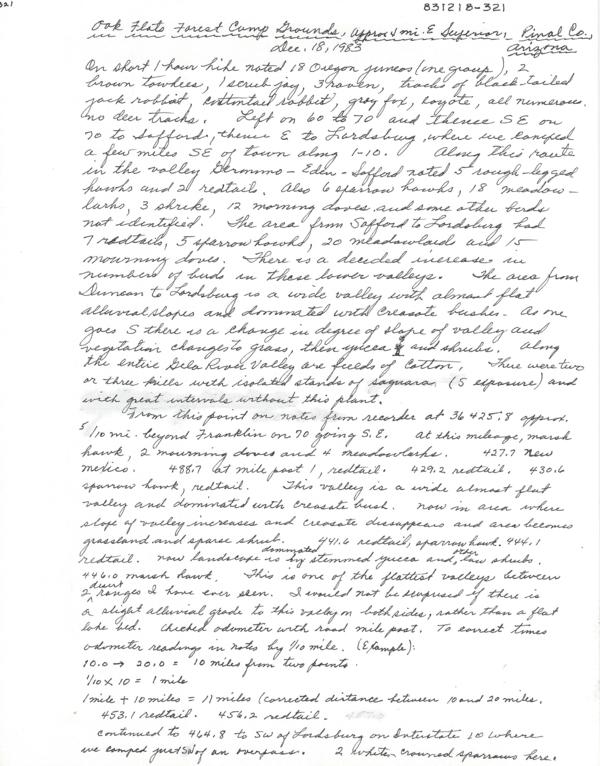 831218-321
Oak Flats Forest Camp Grounds, Approx 5 mi. E Superior, Pinal Co.,
Dec. 18, 1983 Arizona
On short 1 hour hike noted 18 Oregon juncos (one group), 2
brown towhees, 1 scrub jay, 3 raven, tracks of black-tailed
jack rabbit, cottontail rabbit), gray fox, coyote, all numerous.
no deer tracks. Left on 60 to 70 and thence SE on
70 to Safford, thence E to Lordsburg, where we camped
a few miles SE of town along I-10. Along this route
in the valley Geronimo - Eden - Safford noted 5 rough-legged
hawks and 2 redtail. Also 6 sparrow hawks, 18 meadow-
larks, 3 shrike, 12 morning doves and some other birds
not identified. The area from Safford to Lordsburg had
7 redtails, 5 sparrow hawks, 20 meadowlards and 15
mourning doves. There is a decided increase in
numbers of birds in these lower valleys. The area from
Duncan to Lordsburg is a wide valley with almost flat
alluvial slopes and dominated with creosote bushes. As one
goes S there is a change in degree of slope of valley and
vegetation changes to grass, then yucca and shrubs. Along
the entire Gila River Valley are fields of cotton. There were two
or three hills with isolated stands of saguaro (S exposure) and
with great intervals without this plant.
From this point on notes from recorder at 36 425.8 approx.
5/10 mi. beyond Franklin on 70 going S.E. At this mileage, marsh
hawk, 2 mourning doves and 4 meadowlarks. 427.7 New
Mexico. 488.7 at mile post 1, redtail. 429.2 redtail. 430.6
sparrow hawk, redtail. This valley is a wide almost flat
valley and dominated with creosote bush. now in area where
slope of valley increases and creosote dissappears and area becomes
grassland and sparse shrub. 441.6 redtail, sparrow hawk. 444.1
redtail. now landscape is dominated by stemmed yucca and other low shrubs.
446.0 marsh hawk. This is one of the flattest valleys between
2 desert ranges I have ever seen. I would not be surprised if there is
a slight alluvial grade to this valley on both sides, rather than a flat
lake bed. Checked odometer with road mile post. To correct times
odometer readings in notes by 1/10 mile. (Example):
10.0 → 20.0 = 10 miles from two points.
1/10 x 10 = 1 mile
1 mile + 10 miles = 11 miles (corrected distance between 10 and 20 miles.
453.1 redtail. 456.2 redtail.
continued to 464.8 to SW of Lordsburg on Interstate 10 where
we camped just SW of an overpass. 2 white crowned sparrows here.